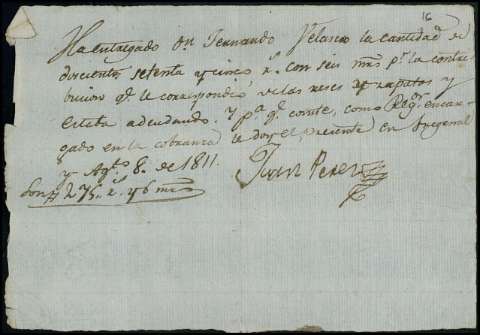 16
Ha entregado Dn. Fernando Velasco la cantidad de
doscientos setenta y cinco rs. con seis mrs. pr. la contri
bucion qe. le corresponde de las reses y zapatos y
esteta adeudando. y pa. qe. conste, como Regr. encar
gado en la cobranza le doy el presente en Fregenal
y Agto. 8. de 1811.
Juan Perez
Son # 275. r. y 6 mrs.